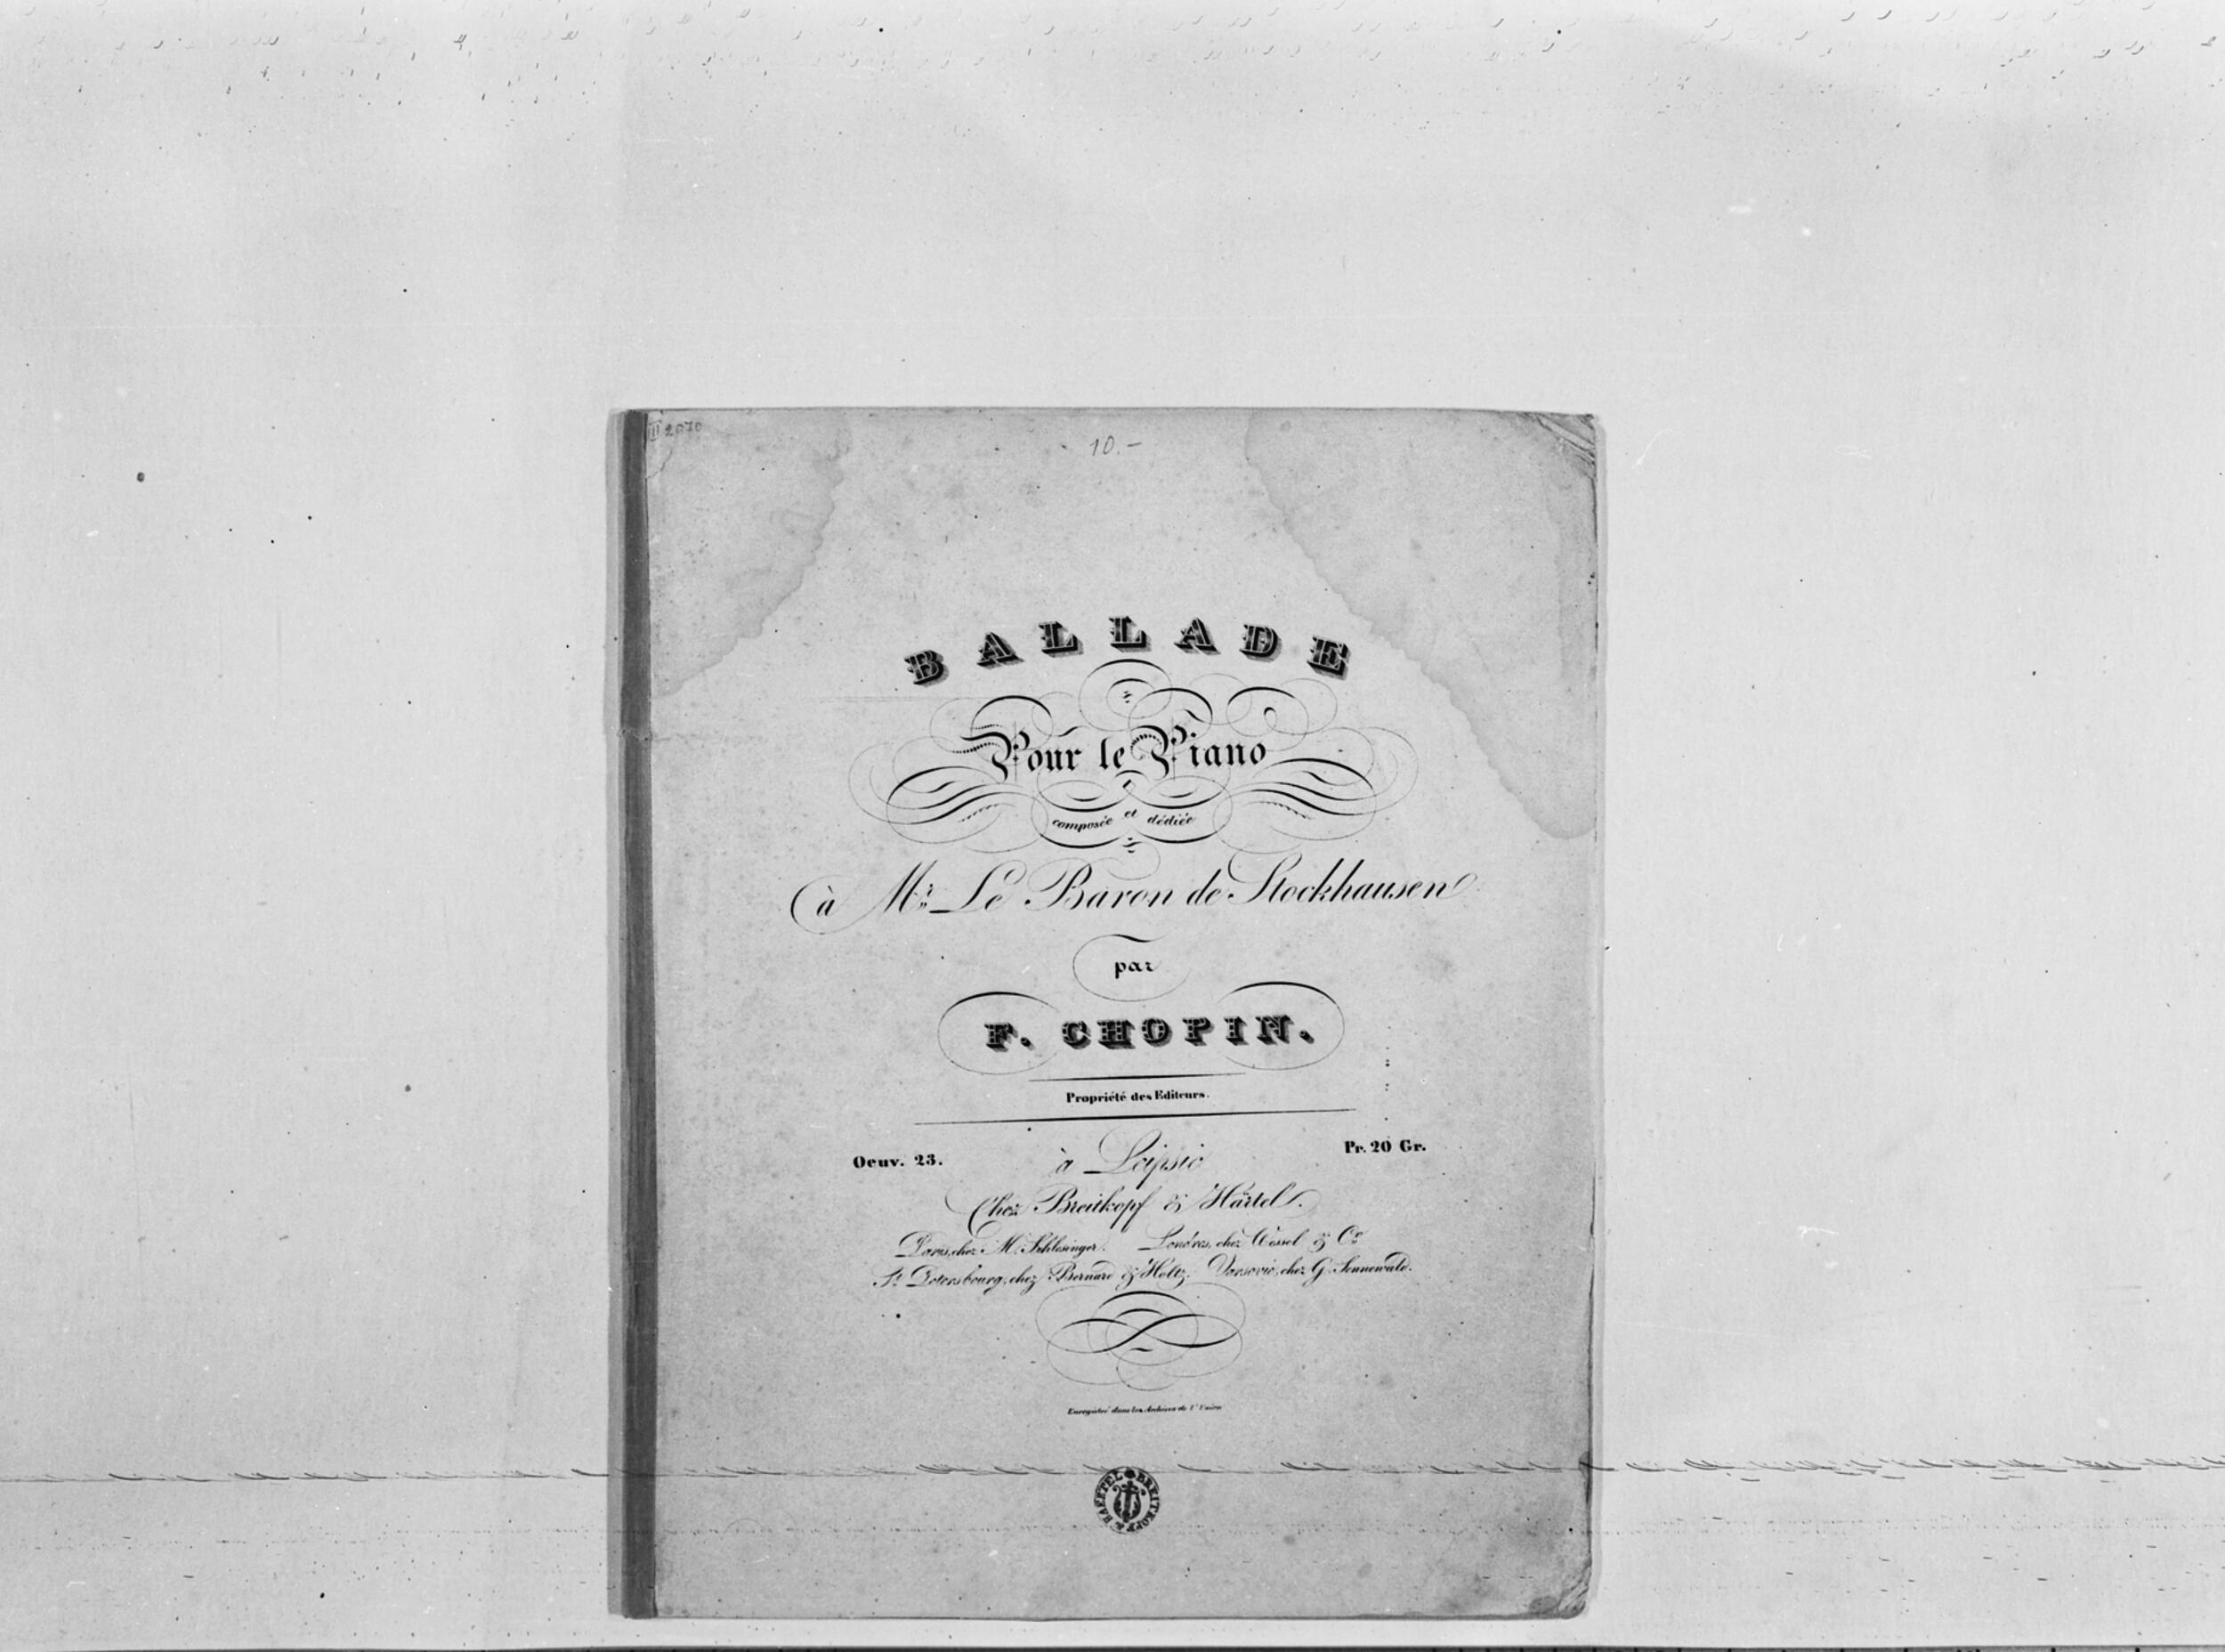 2070
10.-
BALLADE
Pour le Piano
composée et dédiée
à Mr. Le Baron de Stockhausen
par
F. CHOPIN.
Propriété des Editeurs.
Oeuv. 23. à Leipsic Pr. 20 Gr.
Chez Breitkopf & Härtel.
Paris, chez M. Schlesinger. Londres, chez Wessel & Co.
St. Petersbourg, chez Bernard & Holtz. Varsovie, chez G. Sennewald.
Enregistré dans les Archives de l'Union
BREITKOPF & HAERTEL